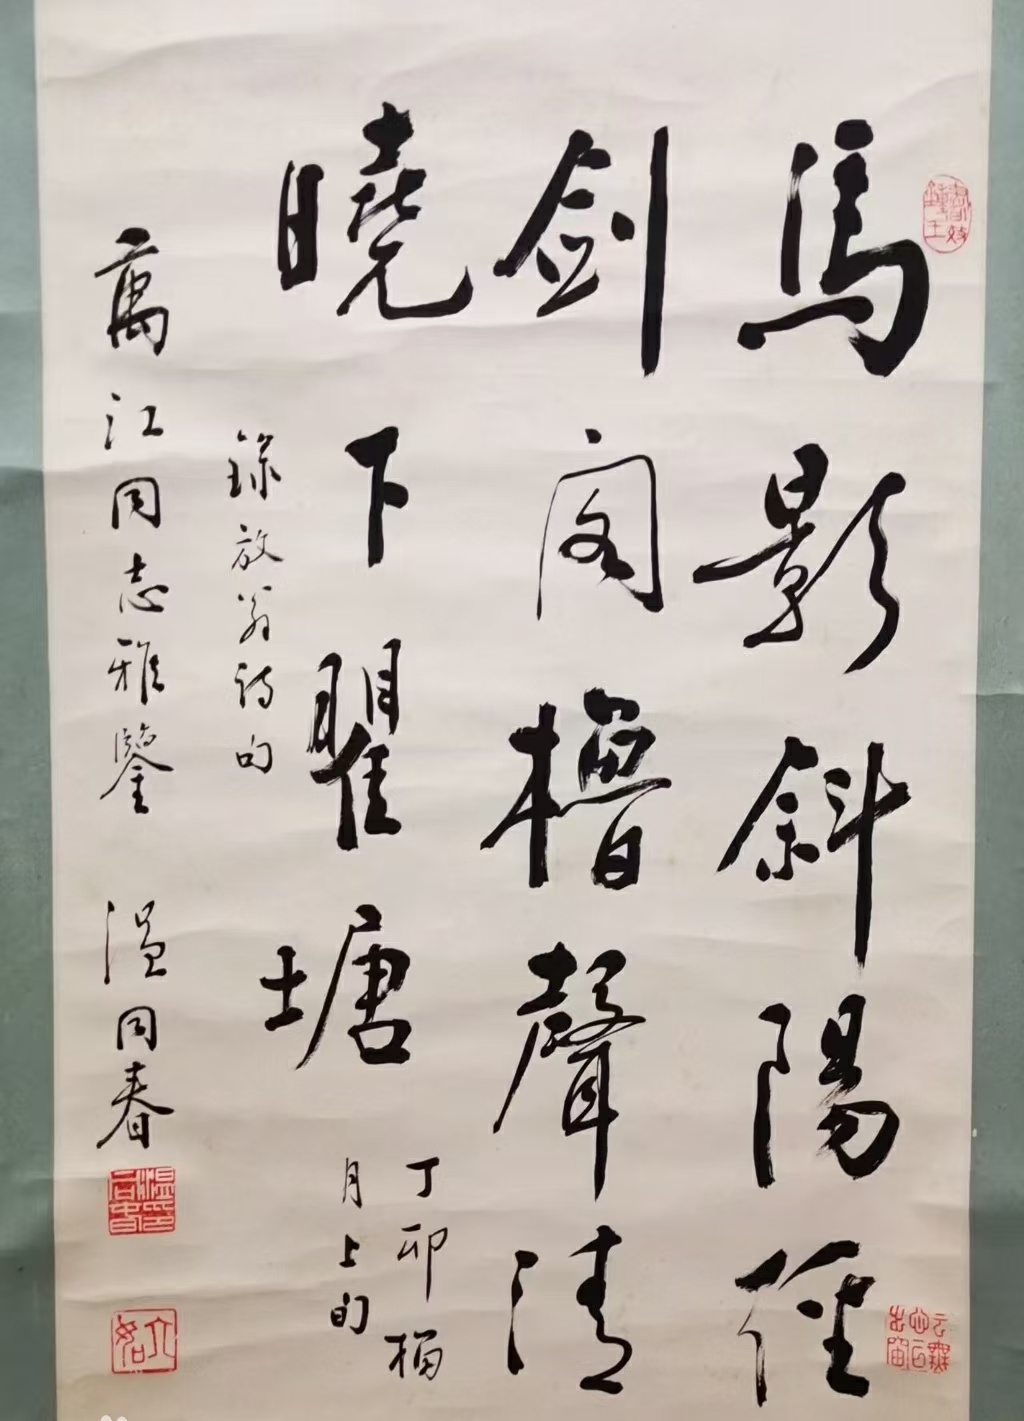 馬影斜陽經
劍閣櫓聲清
曉下瞿塘
丁卯
月上旬
錄放翁詩句
萬江同志雅鑒 溫同春
溫同春印